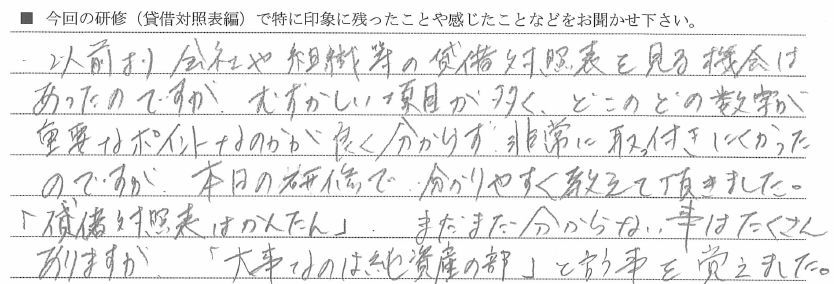 ■ 今回の研修（貸借対照表編）で特に印象に残ったことや感じたことなどをお聞かせ下さい。
以前より会社や組織等の貸借対照表を見る機会は
あったのですが、むずかしい項目が多く、どこのどの数字が
重要なポイントなのかが良く分からず非常に取っ付きにくかった
のですが、本日の研修で、分かりやすく教えて頂きました。
「貸借対照表はかんたん」、まだまだ分からない事はたくさん
ありますが、「大事なのは純資産の部」と言う事を覚えました。